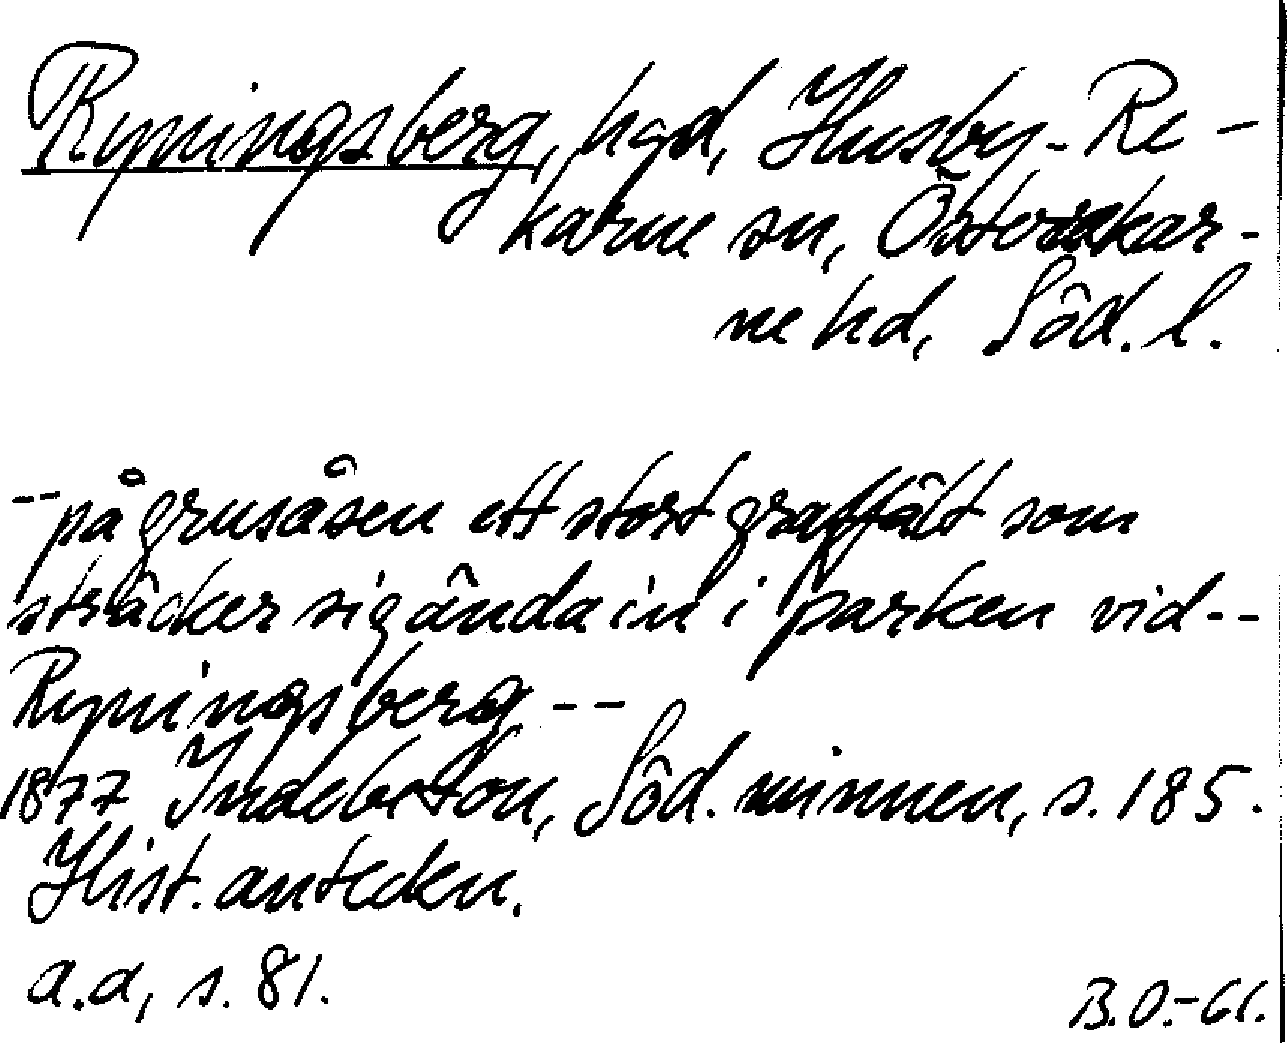 Ryningsberg, hgd, Husby-Re-
karne sn, Österrekar-
ne hd, Söd. l.
-- på grusåsen ett stort graffält som
sträcker sig ända in i parken vid --
Ryningsberg --
1877 Indebetou, Söd. minnen, s. 185.
Hist. anteckn.
a.a, s. 81.
B.O.-61.